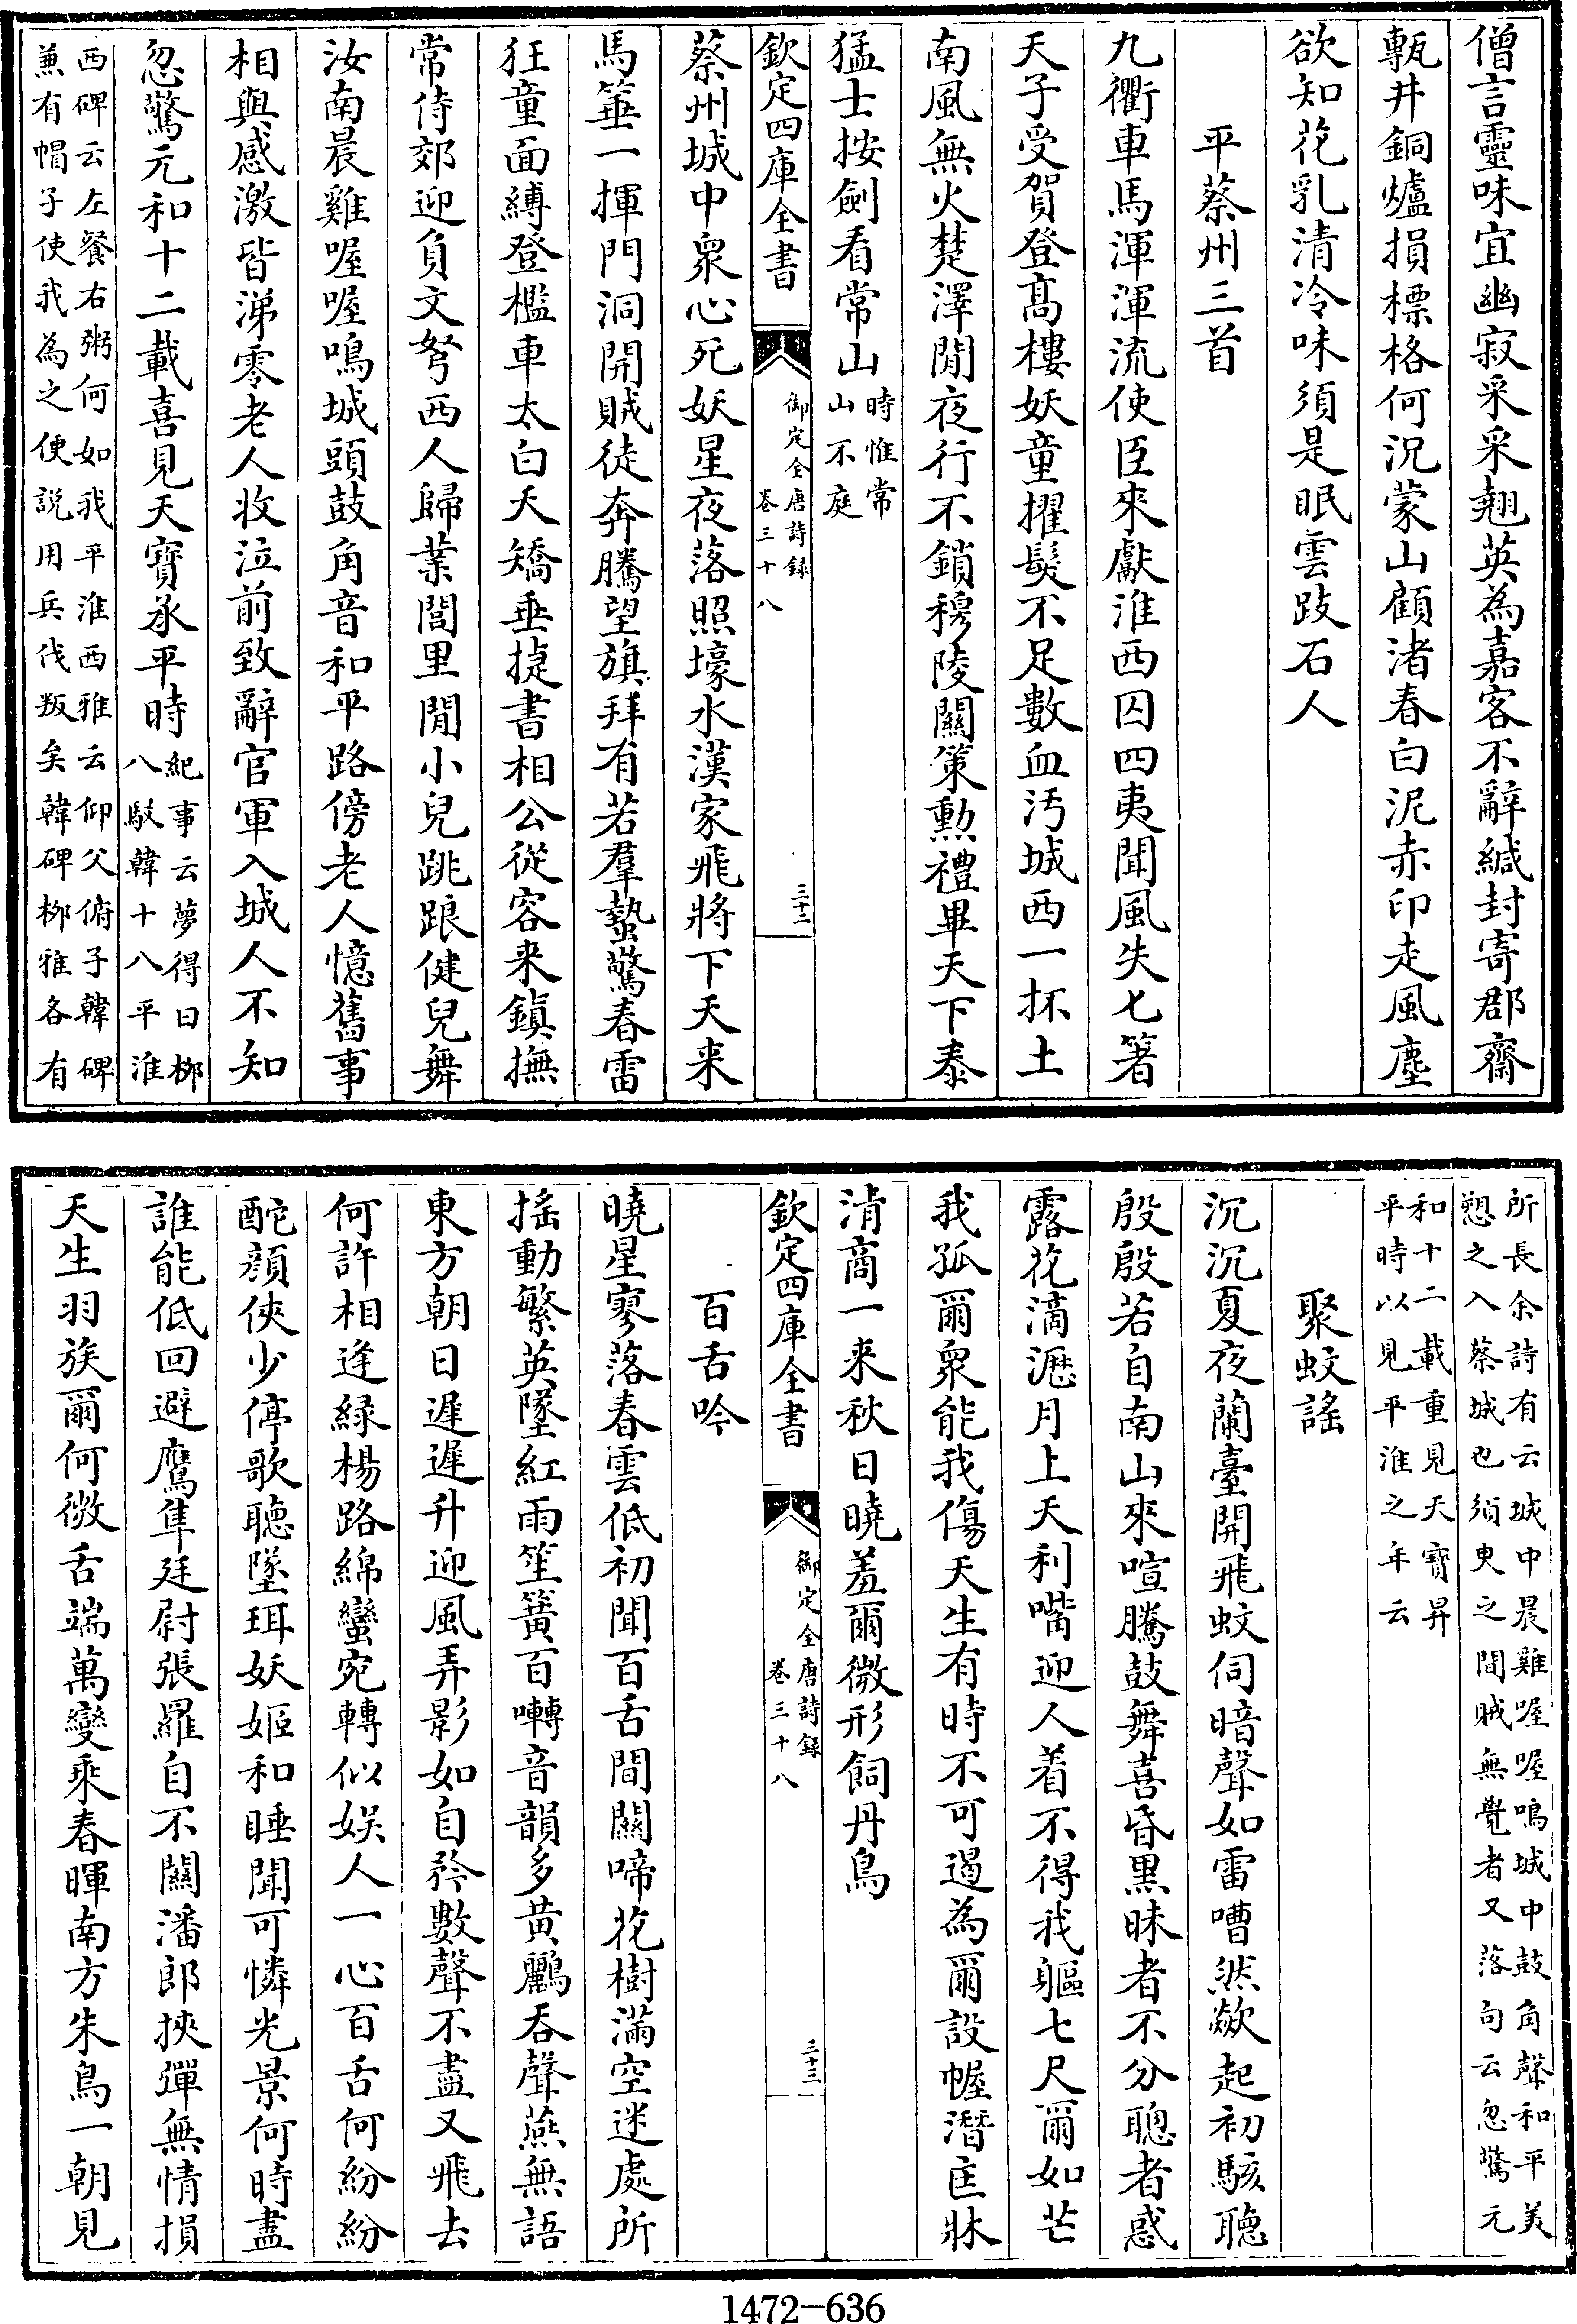 僧言靈味宜幽寂采采翹英為嘉客不辭緘封寄郡齋
甎井銅爐損標格何況蒙山顧渚春白泥赤印走風塵
欲知花乳清冷味須是眠雲跂石人
平蔡州三首
九衢車馬渾渾流使臣來獻淮西囚四夷聞風失七箸
天子受賀登髙樓妖童擢髮不足數血汚城西一抔土
南風無火楚澤閒夜行不鎖穆陵關策勲禮畢天下泰
猛士按劍看常山時惟常
山不庭
欽定四庫全書
御定全唐詩録
卷三十八
三十二
蔡州城中衆心死妖星夜落照壕水漢家飛將下天来
馬箠一揮門洞開賊徒奔騰望旗拜有若羣蟄驚春雷
狂童面縛登檻車太白夭矯垂捷書相公從容来鎮撫
常侍郊迎負文弩西人歸業閭里閒小兒跳踉健兒舞
汝南晨雞喔喔鳴城頭鼓角音和平路傍老人憶舊事
相與感激皆涕零老人收泣前致辭官軍入城人不知
忽驚元和十二載喜見天寶承平時紀事云夢得曰栁
八駁韓十八平淮
西碑云左餐右粥何如我平淮西雅云仰父俯子韓碑
兼有帽子使我為之便説用兵伐叛矣韓碑栁雅各有
所長余詩有云城中晨雞喔喔鳴城中鼓角聲和平美
愬之入蔡城也須臾之間賊無覺者又落句云忽驚元
和十二載重見天寶昇
平時以見平淮之年云
聚蚊謠
沉沉夏夜蘭臺開飛蚊伺暗聲如雷嘈然歘起初駭聽
殷殷若自南山來喧騰鼓舞喜昏黒昧者不分聰者惑
露花滴瀝月上天利嘴迎人着不得我軀七尺爾如芒
我孤爾衆能我傷天生有時不可遏為爾設幄潛匡牀
清商一来秋日曉羞爾微形飼丹鳥
欽定四庫全書
御定全唐詩録
卷三十八
三十三
百舌吟
曉星寥落春雲低初聞百舌間關啼花樹滿空迷處所
揺動繁英墜紅雨笙簧百囀音韻多黄鸝吞聲燕無語
東方朝日遲遲升迎風弄影如自矜數聲不盡又飛去
何許相逢緑楊路綿蠻宛轉似娱人一心百舌何紛紛
酡顔俠少停歌聽墜珥妖姬和睡聞可憐光景何時盡
誰能低回避鷹隼廷尉張羅自不關潘郎挾彈無情損
天生羽族爾何微舌端萬變乘春暉南方朱鳥一朝見
1472-636